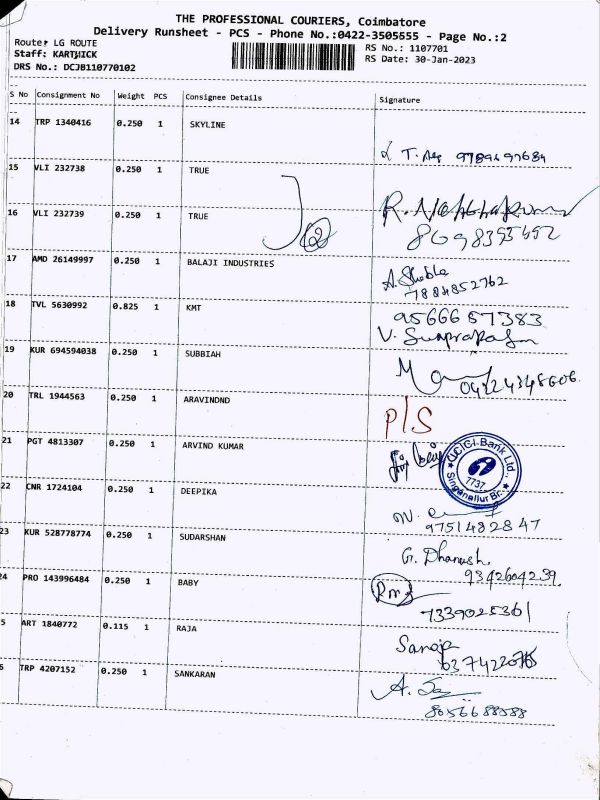 THE PROFESSIONAL COURIERS, Coimbatore
Delivery Runsheet - PCS - Phone No.:0422-3505555 - Page No.:2
Route: LG ROUTE
RS No.: 1107701
Staff: KARTHICK
RS Date: 30-Jan-2023
DRS No.: DCJB110770102
S No Consignment No Weight PCS Consignee Details Signature
14 TRP 1340416 0.250 1 SKYLINE
15 VLI 232738 0.250 1 TRUE
16 VLI 232739 0.250 1 TRUE
8098393492
17 AMD 26149997 0.250 1 BALAJI INDUSTRIES
7884852762
18 TVL 5630992 0.825 1 KMT
9566657383
19 KUR 694594038 0.250 1 SUBBIAH
04224348606
20 TRL 1944563 0.250 1 ARAVINDND
P/S
21 PGT 4813307 0.250 1 ARVIND KUMAR
ICICI Bank Ltd.
7737
Singanallur Br.
22 CNR 1724104 0.250 1 DEEPIKA
9751482847
23 KUR 528778774 0.250 1 SUDARSHAN
G. Dhanush
9342604239
24 PRO 143996484 0.250 1 BABY
7339025361
5 ART 1840772 0.115 1 RAJA
Saroja
6 TRP 4207152 0.250 1 SANKARAN
8056688588